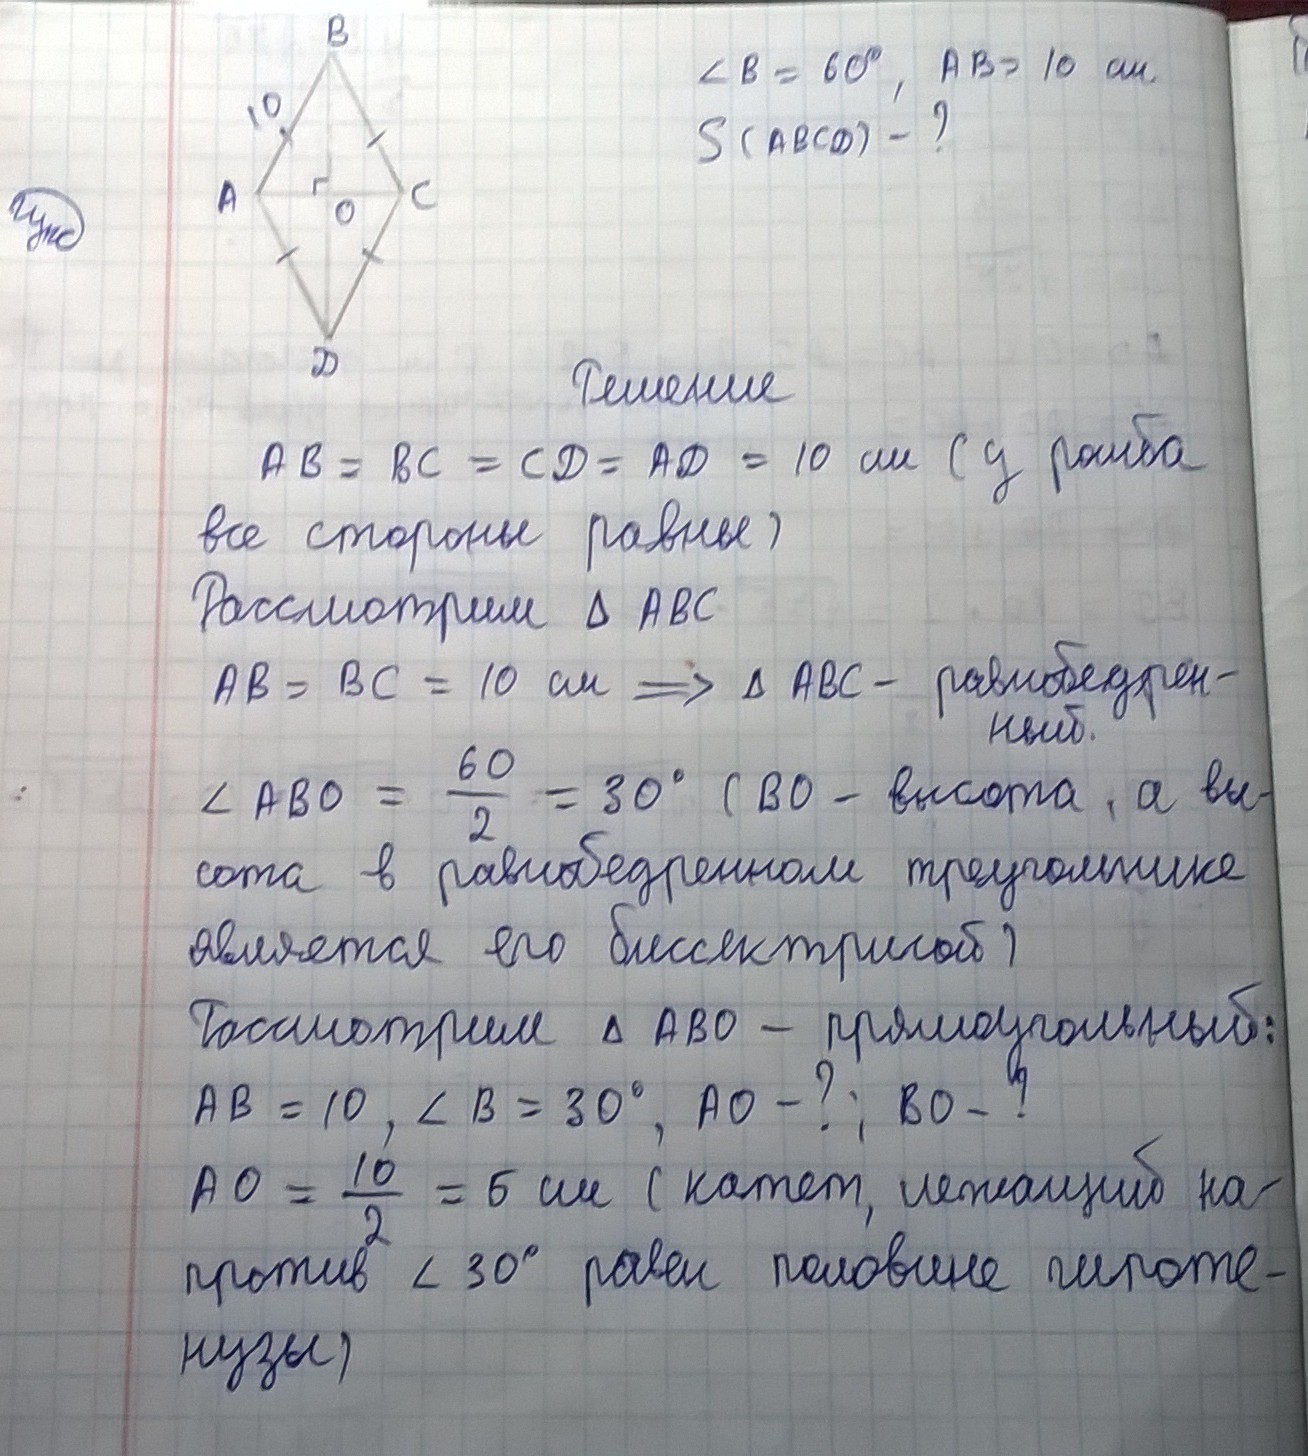 B
∠B = 60°, AB = 10 см.
10
S(ABCD) - ?
A
O
C
D
Решение
AB = BC = CD = AD = 10 см (у ромба
все стороны равны)
Рассмотрим Δ ABC
AB = BC = 10 см => Δ ABC - равнобедрен-
ный.
∠ABO = 60/2 = 30° (BO - высота, а вы-
сота в равнобедренном треугольнике
является его биссектрисой)
Рассмотрим Δ ABO - прямоугольный:
AB = 10, ∠B = 30°, AO - ?; BO - ?
AO = 10/2 = 5 см (катет, лежащий на-
против ∠30° равен половине гипоте-
нузы)